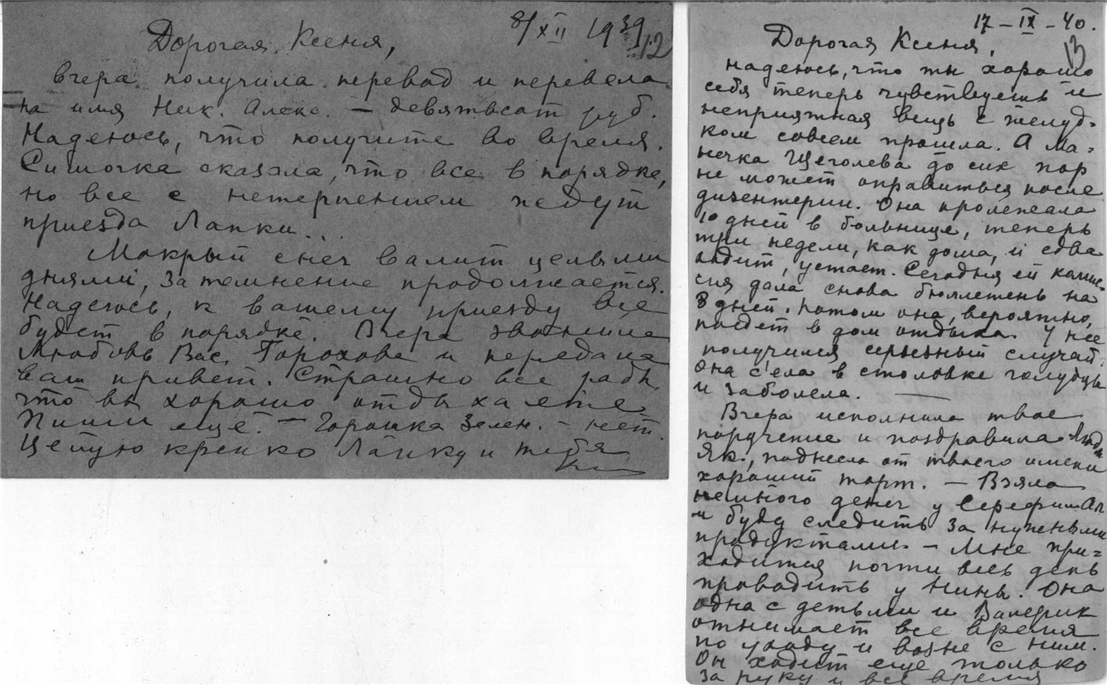 8/XII 1939
12
Дорогая Ксеня,
вчера получила перевод и перевела
на имя Ник. Алекс. — девятьсот руб.
Надеюсь, что получите во время.
Симочка сказала, что все в порядке,
но все с нетерпением ждут
приезда Лапки...
Мокрый снег валит целыми
днями, затемнение продолжается.
Надеюсь, к вашему приезду все
будет в порядке. Вчера звонила
Любовь Вас. Горохова и передала
вам привет. Страшно все рады
что вы хорошо отдыхаете
Пиши еще. — Горошка Зелен. — нет.
Целую крепко Лапку и тебя
17 – IX – 40.
13
Дорогая Ксеня,
надеюсь, что ты хорошо
себя теперь чувствуешь и
неприятная вещь с желуд-
ком совсем прошла. А Ма-
нечка Щеголева до сих пор
не может оправиться после
дизентерии. Она пролежала
10 дней в больнице, теперь
три недели, как дома, и едва
ходит, устает. Сегодня ей комис-
сия дала снова бюллетень на
8 дней. Потом она, вероятно,
поедет в дом отдыха. У нее
получился серьезный случай.
Она с'ела в столовке голубцы
и заболела. —
Вчера исполнила твое
поручение и поздравила
Як., поднесла от твоего имени
хороший торт. — Взяла
немного денег у Серафим Ал
и буду следить за нужными
продуктами. — Мне при-
ходится почти весь день
проводить у Нины. Она
одна с детьми и Валерик
отнимает все время
по уходу и возне с ним.
Он ходит еще только
за руку и все время